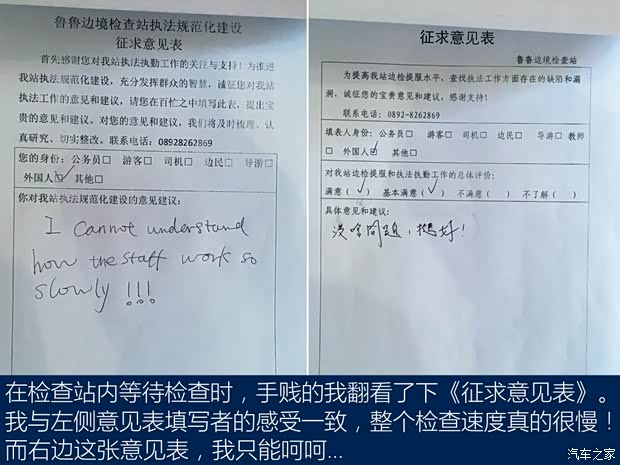 鲁鲁边境检查站执法规范化建设
征求意见表
首先感谢您对我站执法执勤工作的关注与支持！为推进
我站执法规范化建设，充分发挥群众的智慧，诚征您对我站
执法工作的意见和建议，请您在百忙之中填写此表，提出宝
贵的意见和建议。对您的意见和建议，我们将及时梳理、认
真研究、切实整改。联系电话：08928262869
您的身份：公务员□ 游客□ 司机□ 边民□ 导游□
外国人☑ 其他□
你对我站执法规范化建设的意见建议：
I Cannot understand
how the staff work so
slowly !!!
征求意见表
鲁鲁边境检查站
为提高我站边检提服水平，查找执法工作方面存在的缺陷和漏
洞，诚征您的宝贵意见和建议，感谢支持！
联系电话：0892-8262869
填表人身份：公务员□ 游客□ 司机□ 边民□ 导游□ 教师
□ 外国人☑ 其他□
对我站边检提服和执法执勤工作的总体评价：
满意（√） 基本满意（√） 不满意（ ） 不了解（ ）
具体意见和建议：
没啥问题，挺好！
在检查站内等待检查时，手贱的我翻看了下《征求意见表》。
我与左侧意见表填写者的感受一致，整个检查速度真的很慢！
而右边这张意见表，我只能呵呵...
汽车之家